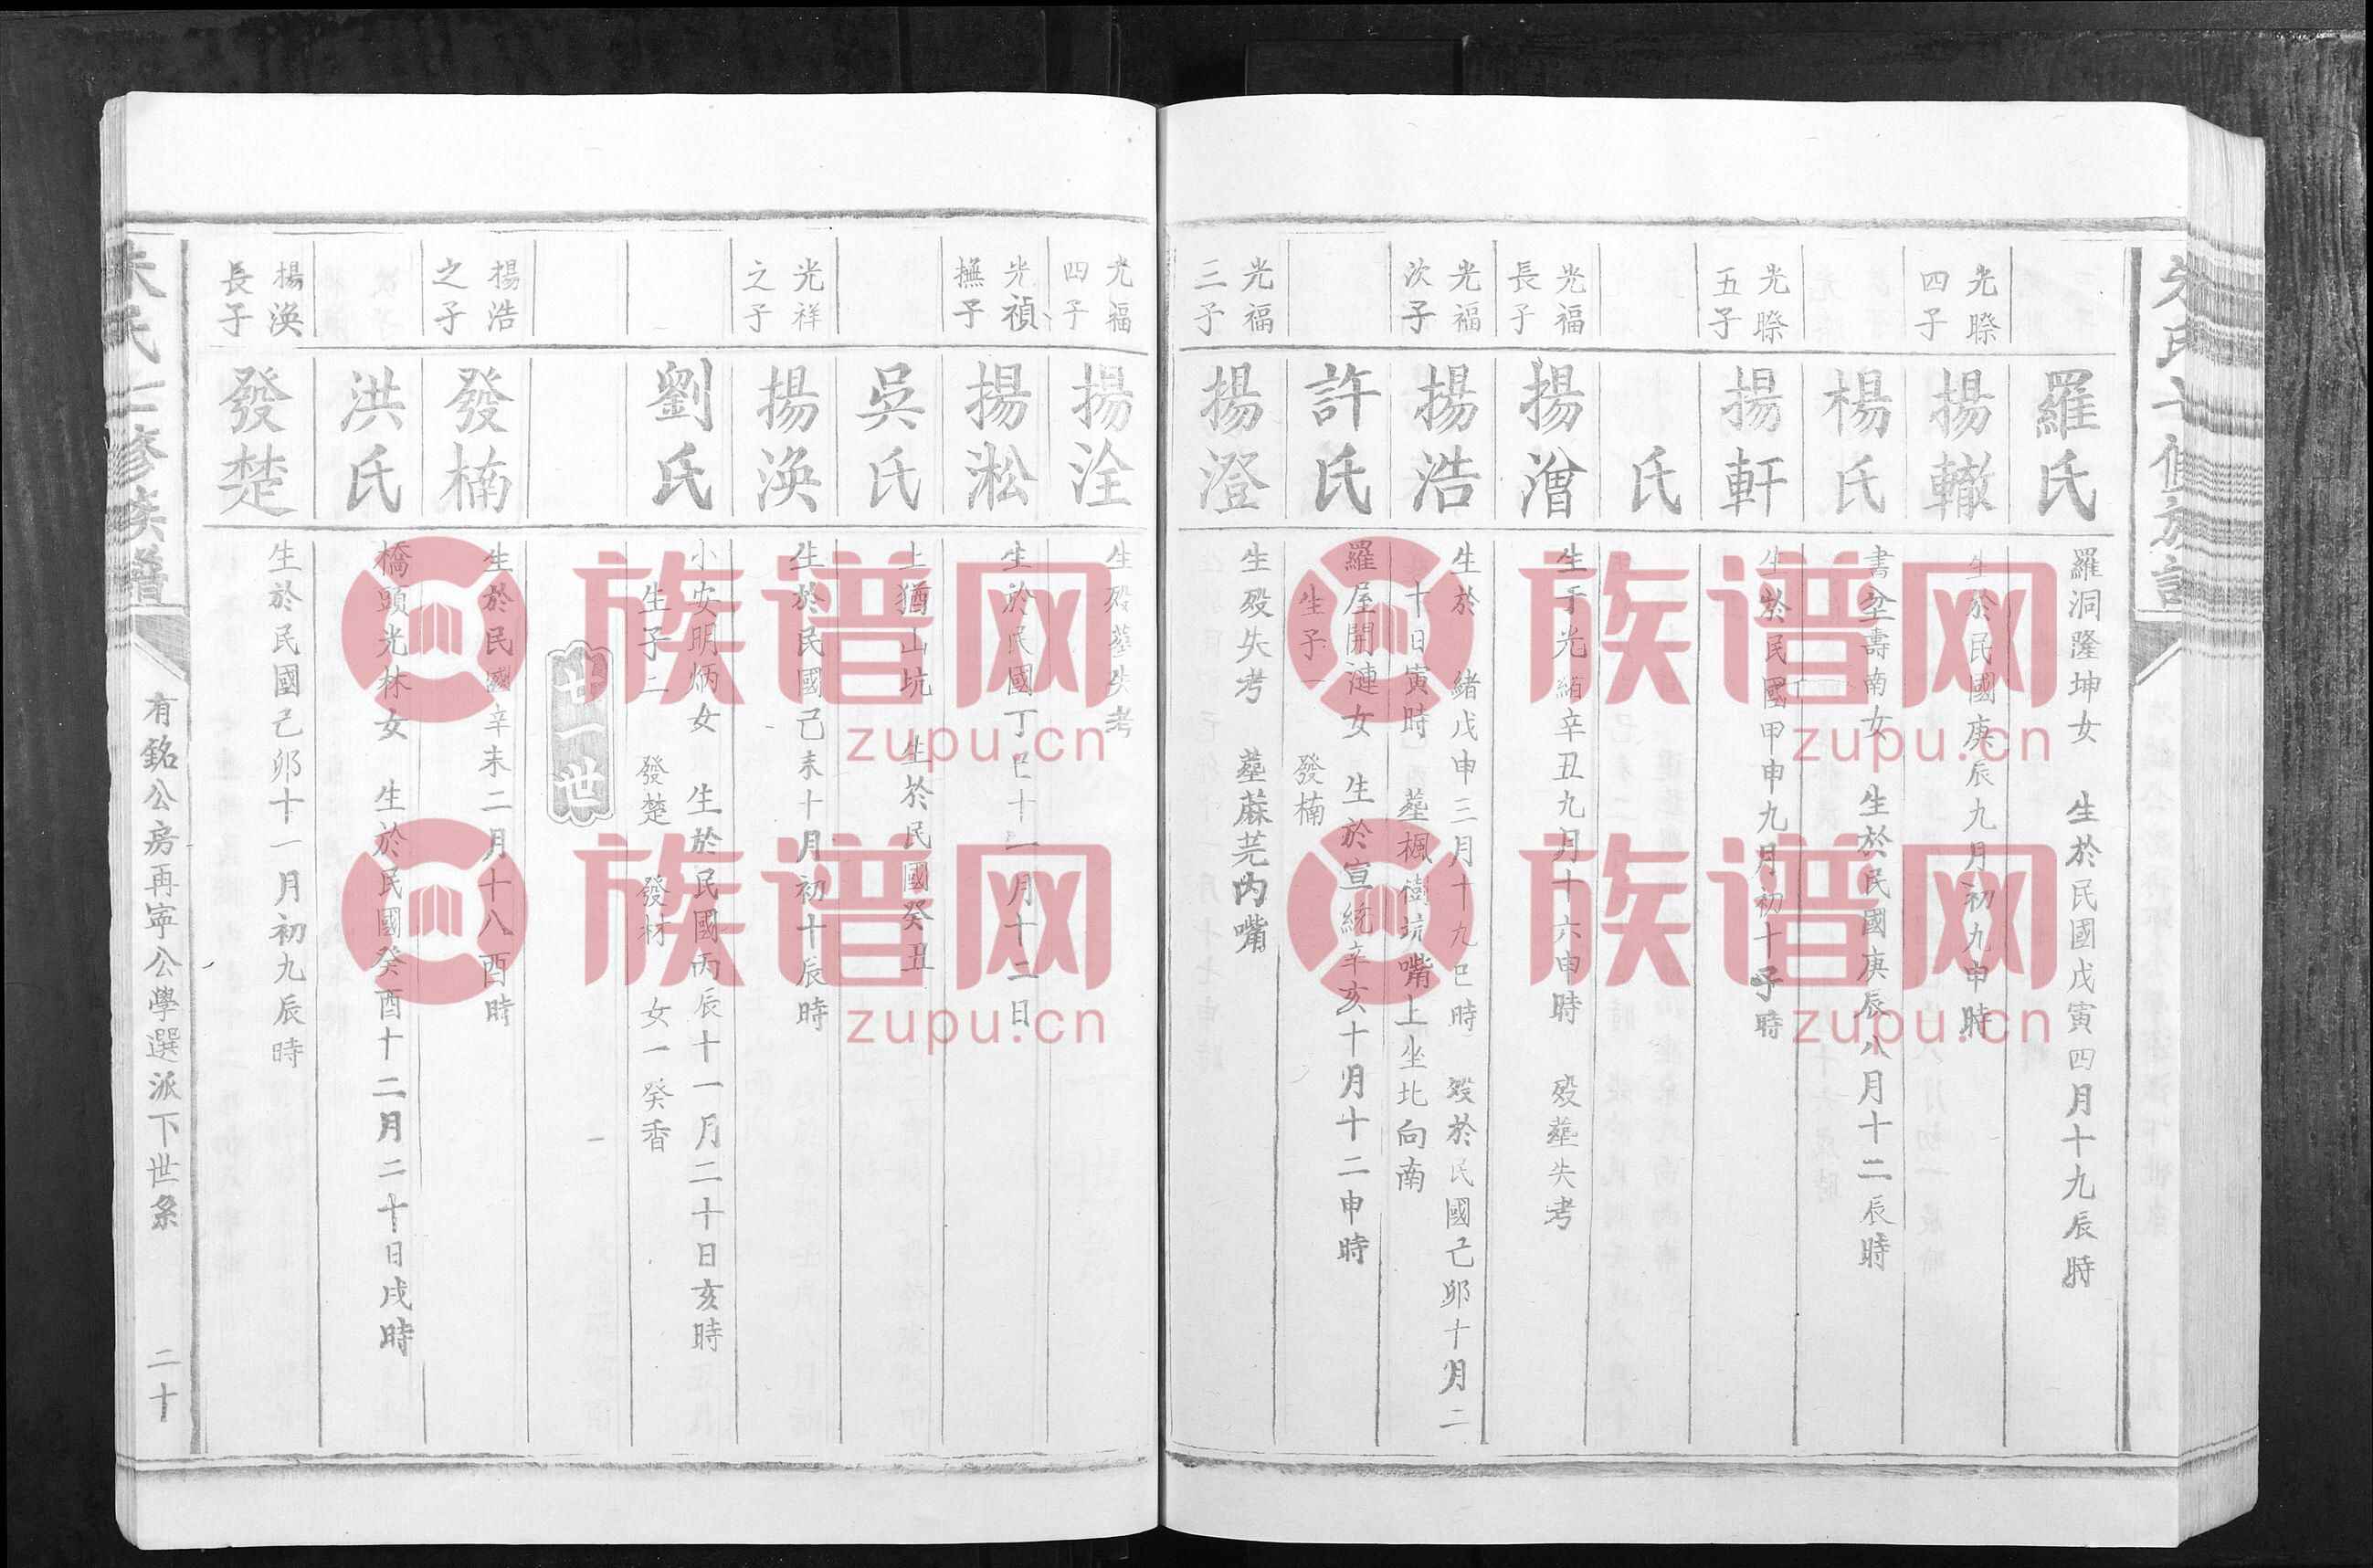 羅氏
羅洞隆坤女 生於民國戊寅四月十九辰時
光暌四子
揚轍
生於民國庚辰九月初九申時
楊氏
書坌壽南女 生於民國庚辰八月十二辰時
光暌五子
揚軒
生於民國甲申九月初十子時
氏
光福長子
揚濳
生于光緒辛丑九月十六申時 歿塟失考
光福次子
揚浩
生於 緒戊申三月十九巳時 歿於民國己卯十月二
十日寅時 塟楓樹坑嘴上坐北向南
許氏
羅屋開漣女 生於宣統辛亥十月十二申時
生子一 發楠
光福三子
揚澄
生歿失考 塟蔴芫內嘴
光福四子
揚洤
生歿塟失考
光禎撫子
揚淞
生於民國丁巳十一月十二日
吳氏
上猶山坑 生於民國癸丑
光祥之子
揚渙
生於民國己未十月初十辰時
劉氏
小安明炳女 生於民國丙辰十一月二十日亥時
生子二 發楚 發材 女一癸香
廿一世
揚浩之子
發楠
生於民國辛未二月十八酉時
洪氏
橋頭光林女 生於民國癸酉十二月二十日戌時
揚渙長子
發楚
生於民國己卯十一月初九辰時
朱氏七修族譜
有銘公房再寧公學選派下世系
二十
族谱网
zupu.cn
族谱网
zupu.cn
族谱网
zupu.cn
族谱网
zupu.cn